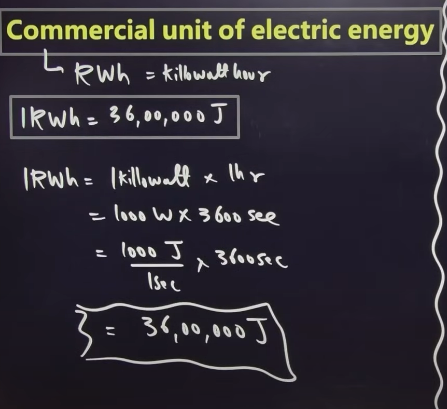 Commercial unit of electric energy
kWh = killowatt hour
1kWh = 36,00,000 J
1kWh = 1killowatt × 1hr
= 1000 W × 3600 sec
= 1000 J / 1sec × 3600sec
= 36,00,000 J